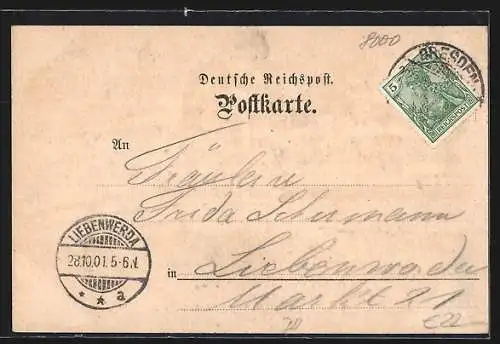 8000
DRESDEN
5
REICHSPOST
Deutsche Reichspost.
Postkarte.
An
Fräulein
Frida Schermann
LIEBENWERDA
28.10.01. 5-6.N.
* * a
in Liebenwerda
Markt 21